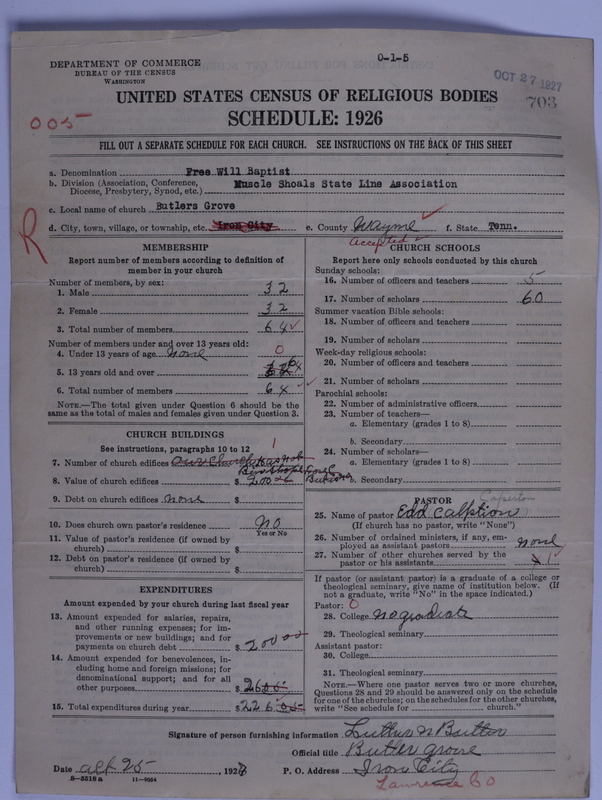 DEPARTMENT OF COMMERCE
BUREAU OF THE CENSUS
WASHINGTON
0-1-5
OCT 27 1927
703
UNITED STATES CENSUS OF RELIGIOUS BODIES
SCHEDULE: 1926
005
FILL OUT A SEPARATE SCHEDULE FOR EACH CHURCH. SEE INSTRUCTIONS ON THE BACK OF THIS SHEET
a. Denomination Free Will Baptist
b. Division (Association, Conference, Diocese, Presbytery, Synod, etc.) Muscle Shoals State Line Association
c. Local name of church Butlers Grove
d. City, town, village, or township, etc. Iron City e. County Wayne f. State Tenn.
R
Accepted
MEMBERSHIP
Report number of members according to definition of
member in your church
Number of members, by sex:
1. Male 32
2. Female 32
3. Total number of members 64
Number of members under and over 13 years old:
4. Under 13 years of age none 0
5. 13 years old and over 64
6. Total number of members 64
NOTE.—The total given under Question 6 should be
same as the total of males and females given under Question 3.
CHURCH BUILDINGS
See instructions, paragraphs 10 to 12
7. Number of church edifices 1
8. Value of church edifices $ 200
9. Debt on church edifices none $
10. Does church own pastor's residence No
Yes or No
11. Value of pastor's residence (if owned by
church) $
12. Debt on pastor's residence (if owned by
church) $
EXPENDITURES
Amount expended by your church during last fiscal year
13. Amount expended for salaries, repairs,
and other running expenses; for im-
provements or new buildings; and for
payments on church debt $ 200 00
14. Amount expended for benevolences, in-
cluding home and foreign missions; for
denominational support; and for all
other purposes $ 26 00
15. Total expenditures during year $ 226 00
CHURCH SCHOOLS
Report here only schools conducted by this church
Sunday schools:
16. Number of officers and teachers 5
17. Number of scholars 60
Summer vacation Bible schools:
18. Number of officers and teachers
19. Number of scholars
Week-day religious schools:
20. Number of officers and teachers
21. Number of scholars
Parochial schools:
22. Number of administrative officers
23. Number of teachers—
a. Elementary (grades 1 to 8)
b. Secondary
24. Number of scholars—
a. Elementary (grades 1 to 8)
b. Secondary
PASTOR
25. Name of pastor Edd
(If church has no pastor, write "None")
26. Number of ordained ministers, if any, em-
ployed as assistant pastors none
27. Number of other churches served by the
pastor or his assistants 1
If pastor (or assistant pastor) is a graduate of a college or
theological seminary, give name of institution below. (If
not a graduate, write "No" in the space indicated.)
Pastor: 0
28. College no graduate
29. Theological seminary
Assistant pastor:
30. College
31. Theological seminary
NOTE.—Where one pastor serves two or more churches,
Questions 28 and 29 should be answered only on the schedule
for one of the churches; on the schedules for the other churches,
write "See schedule for church."
Signature of person furnishing information Luther N Butler
Official title Butler Grove
Date 25, 1927 P. O. Address Iron City
Lawrence Co
8-5518a 11-9064